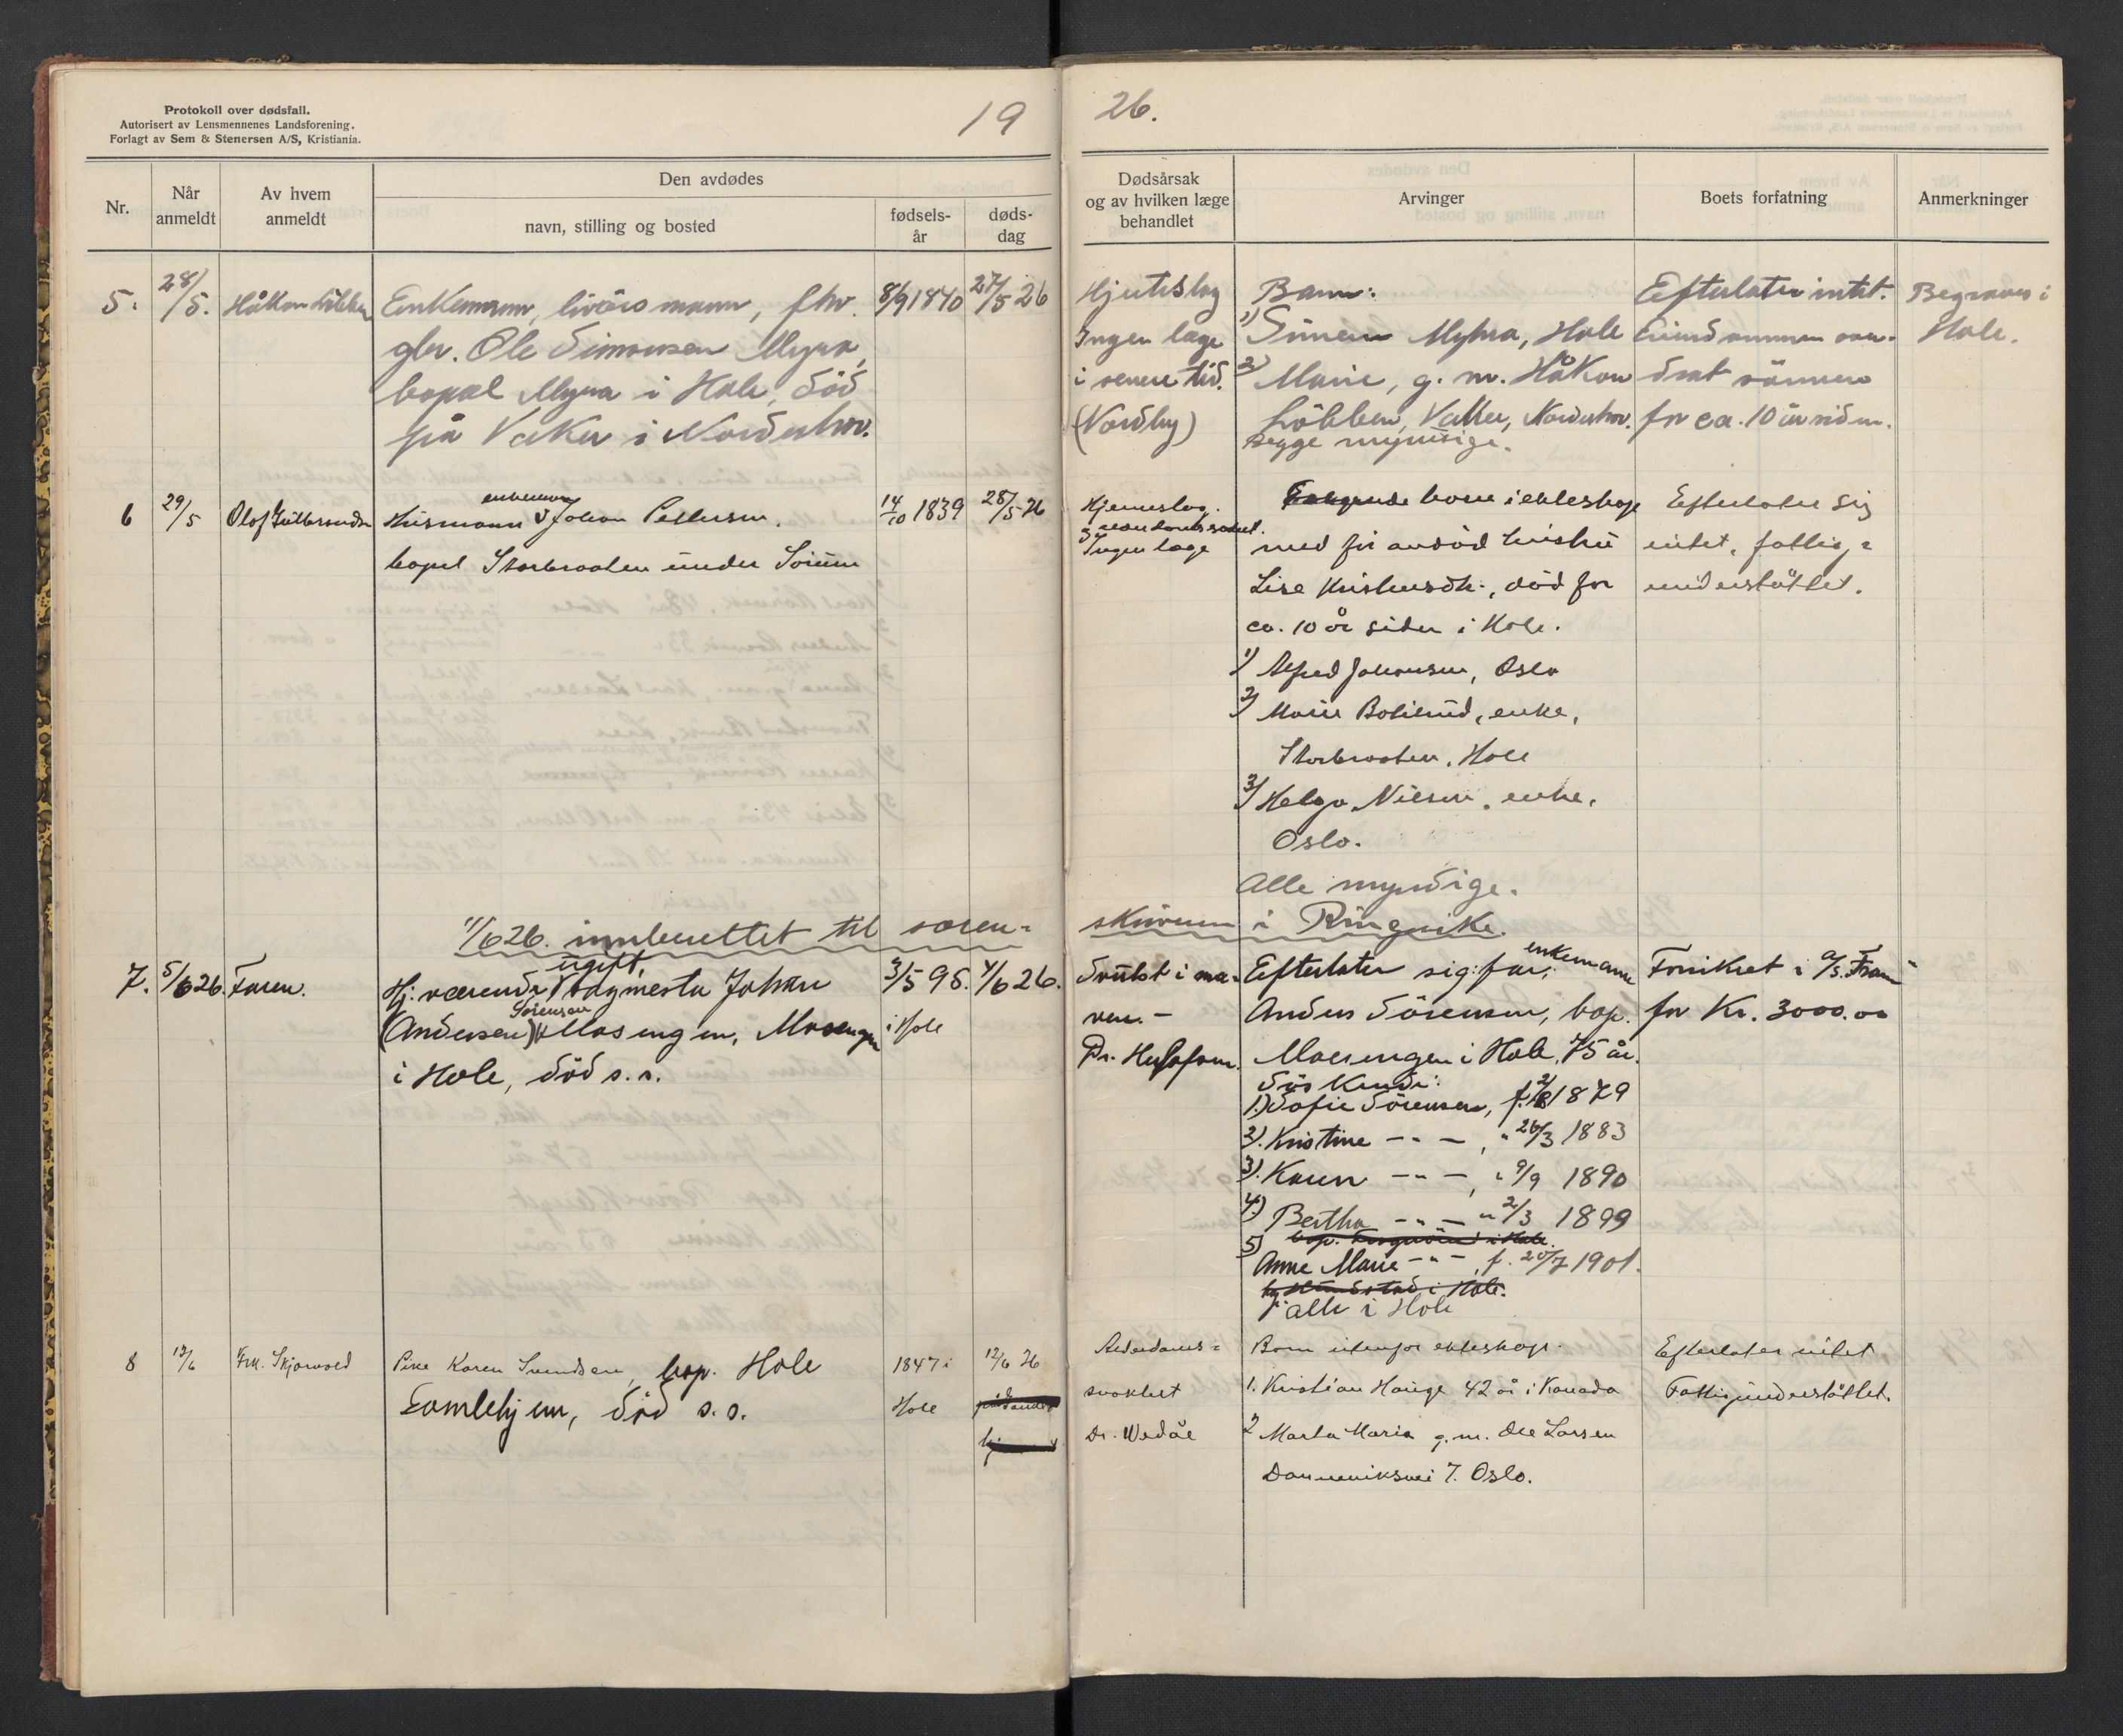 Protokoll over dødsfall.
Autorisert av Lensmennenes Landsforening.
Forlagt av Sem & Stenersen A/S, Kristiania.
19
26.
Nr.
Når anmeldt
Av hvem anmeldt
Den avdødes
navn, stilling og bosted
fødsels-år
døds-dag
Dødsårsak og av hvilken læge behandlet
Arvinger
Boets forfatning
Anmerkninger
5. 28/5. Håkon Löbben
Enkemann, livörsmann, fhv.
gbr. Ole Simonsen Myra,
bopæl Myra i Hole, död
på Vaker i Norderhov.
8/9 1840 27/5 26
Hjerteslag
Ingen læge
i senere tid.
(Nordby)
Barn:
1) Simen Myhra, Hole
2) Marie, g. m. Håkon
Löbben, Vaker, Norderhov.
Begge myndige.
Efterlater intet.
Eiendommen over-
drat sönnen
for ca. 10 år siden.
Begraves i
Hole.
6 29/5 Olof Gulbrandsen
enkemann
Husmann Johan Pettersen.
bopel Storbraaten under Sörum
14/10 1839 28/5 26
Hjerneslag.
Ingen læge
barn i ekteskap
med før avdöd hustru
Lise Kristiansdtr., död for
ca. 10 år siden i Hole.
1) Alfred Johansen, Oslo
2) Marie Bolierud, enke,
Storbraaten, Hole
3) Helga Nilsen, enke,
Oslo.
Alle myndige.
Efterlater sig
intet, fattig-
understöttet.
11/6 26. innberettet til soren-
skriveren i Ringerike.
7. 5/6 26. Faren.
ugift,
Hj. værende dagmester Johan
Sörensen
(Andersen) Mosengen, Mosengen
i Hole, död s. s.
3/5 95. 4/6 26.
i Hole
Svulst i ma-
ven. -
enkemann
Efterlater sig: far:
Anders Sörensen, bop.
Moesengen i Hole, 75 år.
Söskende:
1.) Sofie Sörensen, f. 1879
2). Kristine -"- , " 26/3 1883
3). Karen -"- , " 9/9 1890
4.) Bertha -"- " 2/3 1899
5)
Anne Marie -"- , f. 20/7 1901.
alle i Hole
Forsikret i A/S. Fram
for Kr. 3000.00
8 12/6 Frk. Skjorvold
Pike Karen Svendsen, bop. Hole
Gamlehjem, död s. s.
1847 i
Hole
12/6 26
Alderdoms-
svakhet
Dr. Wedøe
Barn utenfor ekteskap.
1. Kristian Hauge 42 år i Kanada
2 Marta Maria g. m. Ole Larsen
Danmeviksvei 7. Oslo.
Efterlater intet
Fattigunderstöttet.